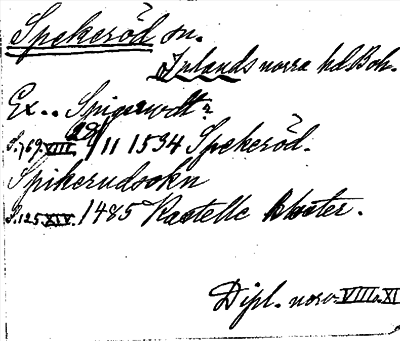 Spekeröd sn.
Inlands norra hd. Boh.
Ex.. Spigerodt?
S. 769. XIII. 29/11 1534 Spekeröd.
Spikerudsokn
S. 125 XIV. 1485 Kastelle kloster.
Dipl. norv. VIII a. XI